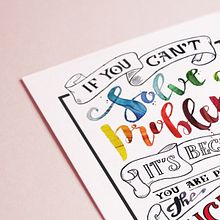 IF YOU CAN'T
Solve
Problem
IT'S BEC
YOU ARE
The